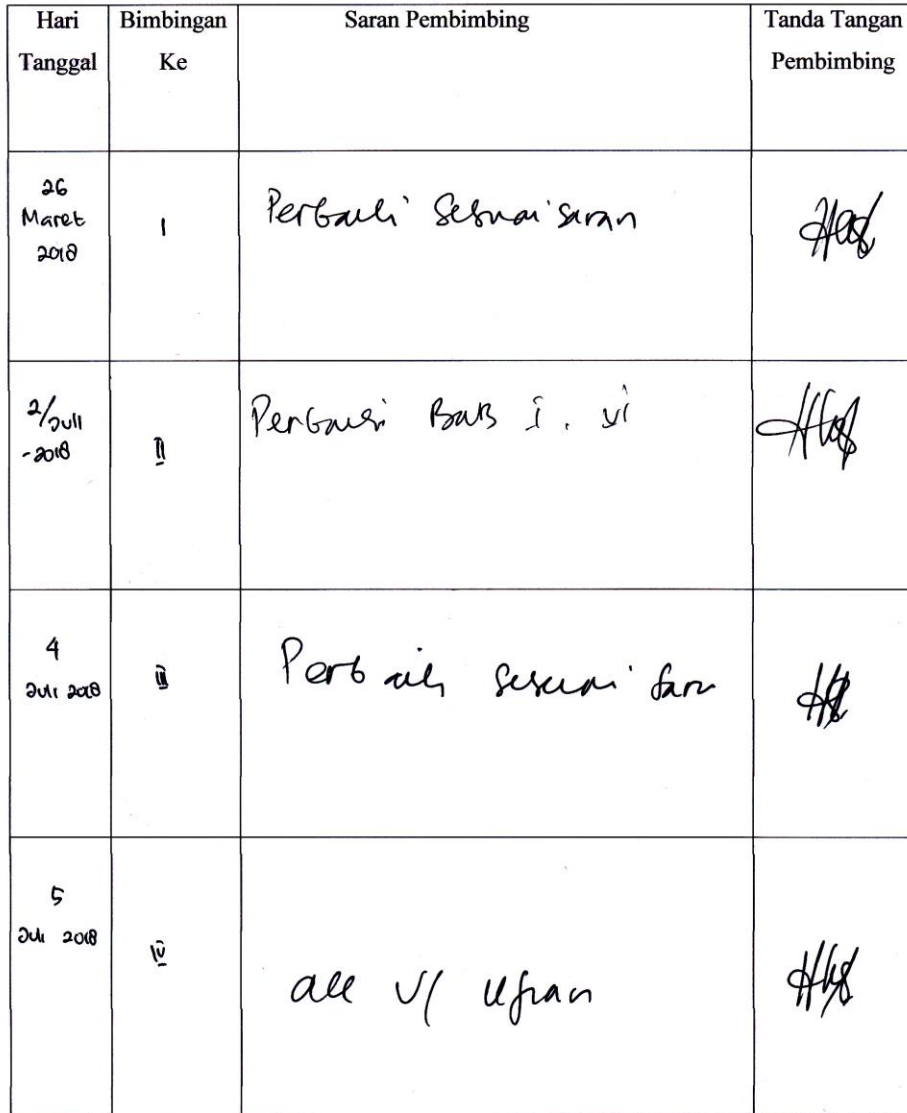 Hari Bimbingan Saran Pembimbing Tanda Tangan
Tanggal Ke Pembimbing
26
Maret
2018
I
Perbaiki sesuai saran
2/Juli
-2018
II
Perbaiki Bab I. VI
4
Juli 2018
III
Perbaiki sesuai saran
5
Juli 2018
IV
acc u/ ujian